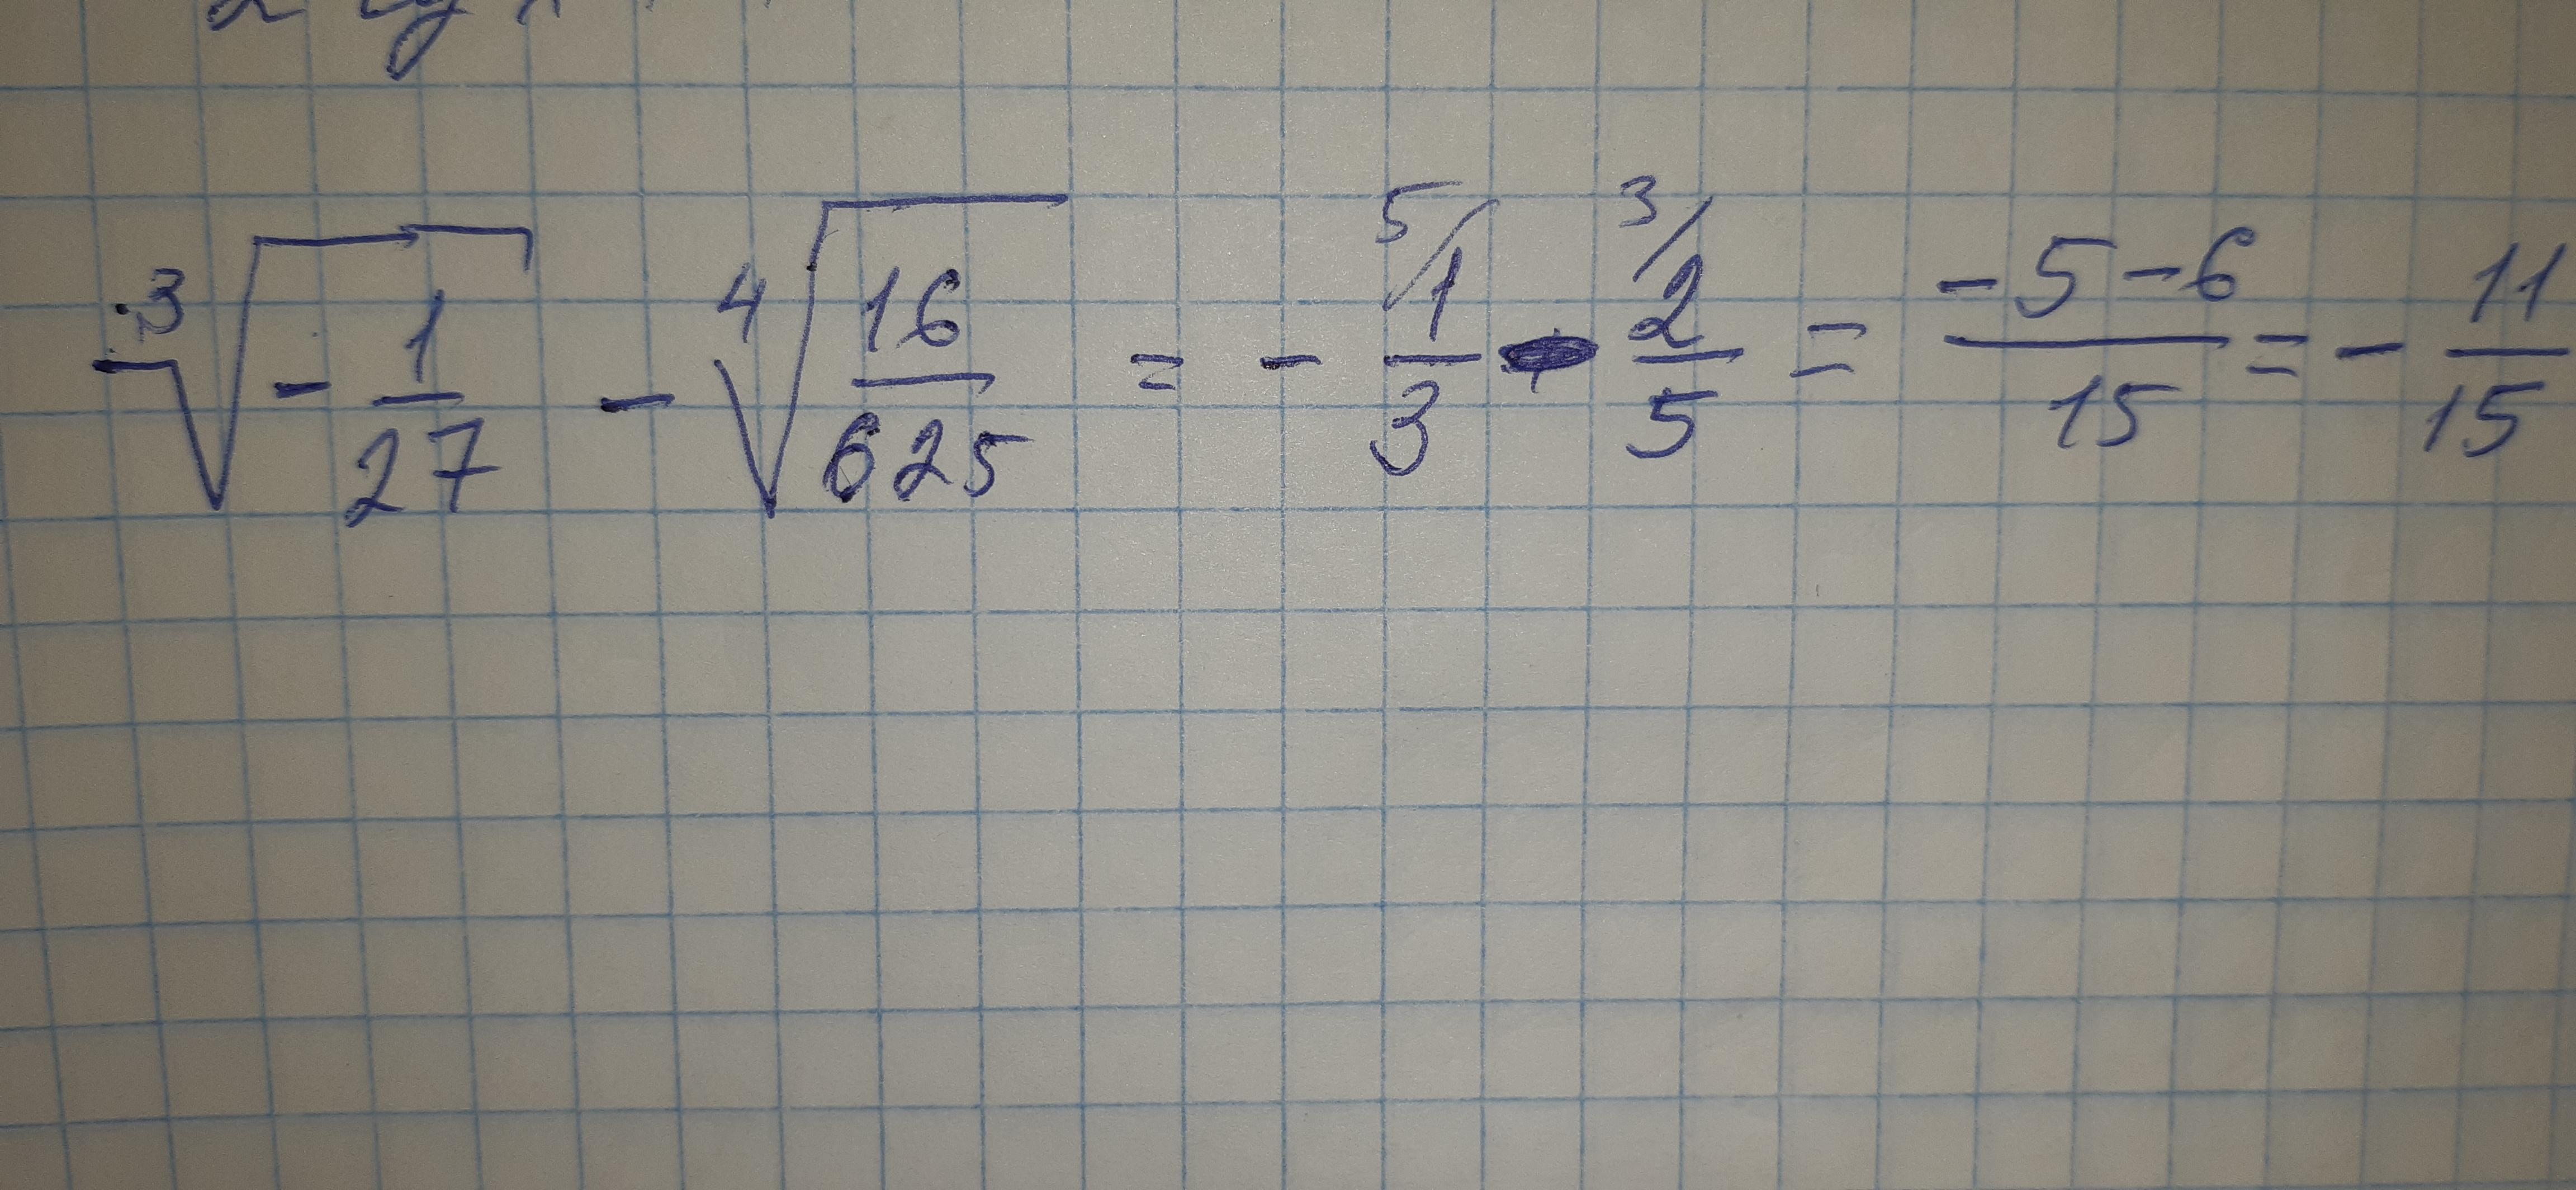 ∛(-1/27) - ∜(16/625) = - 1/3 - 2/5 = (-5-6)/15 = - 11/15